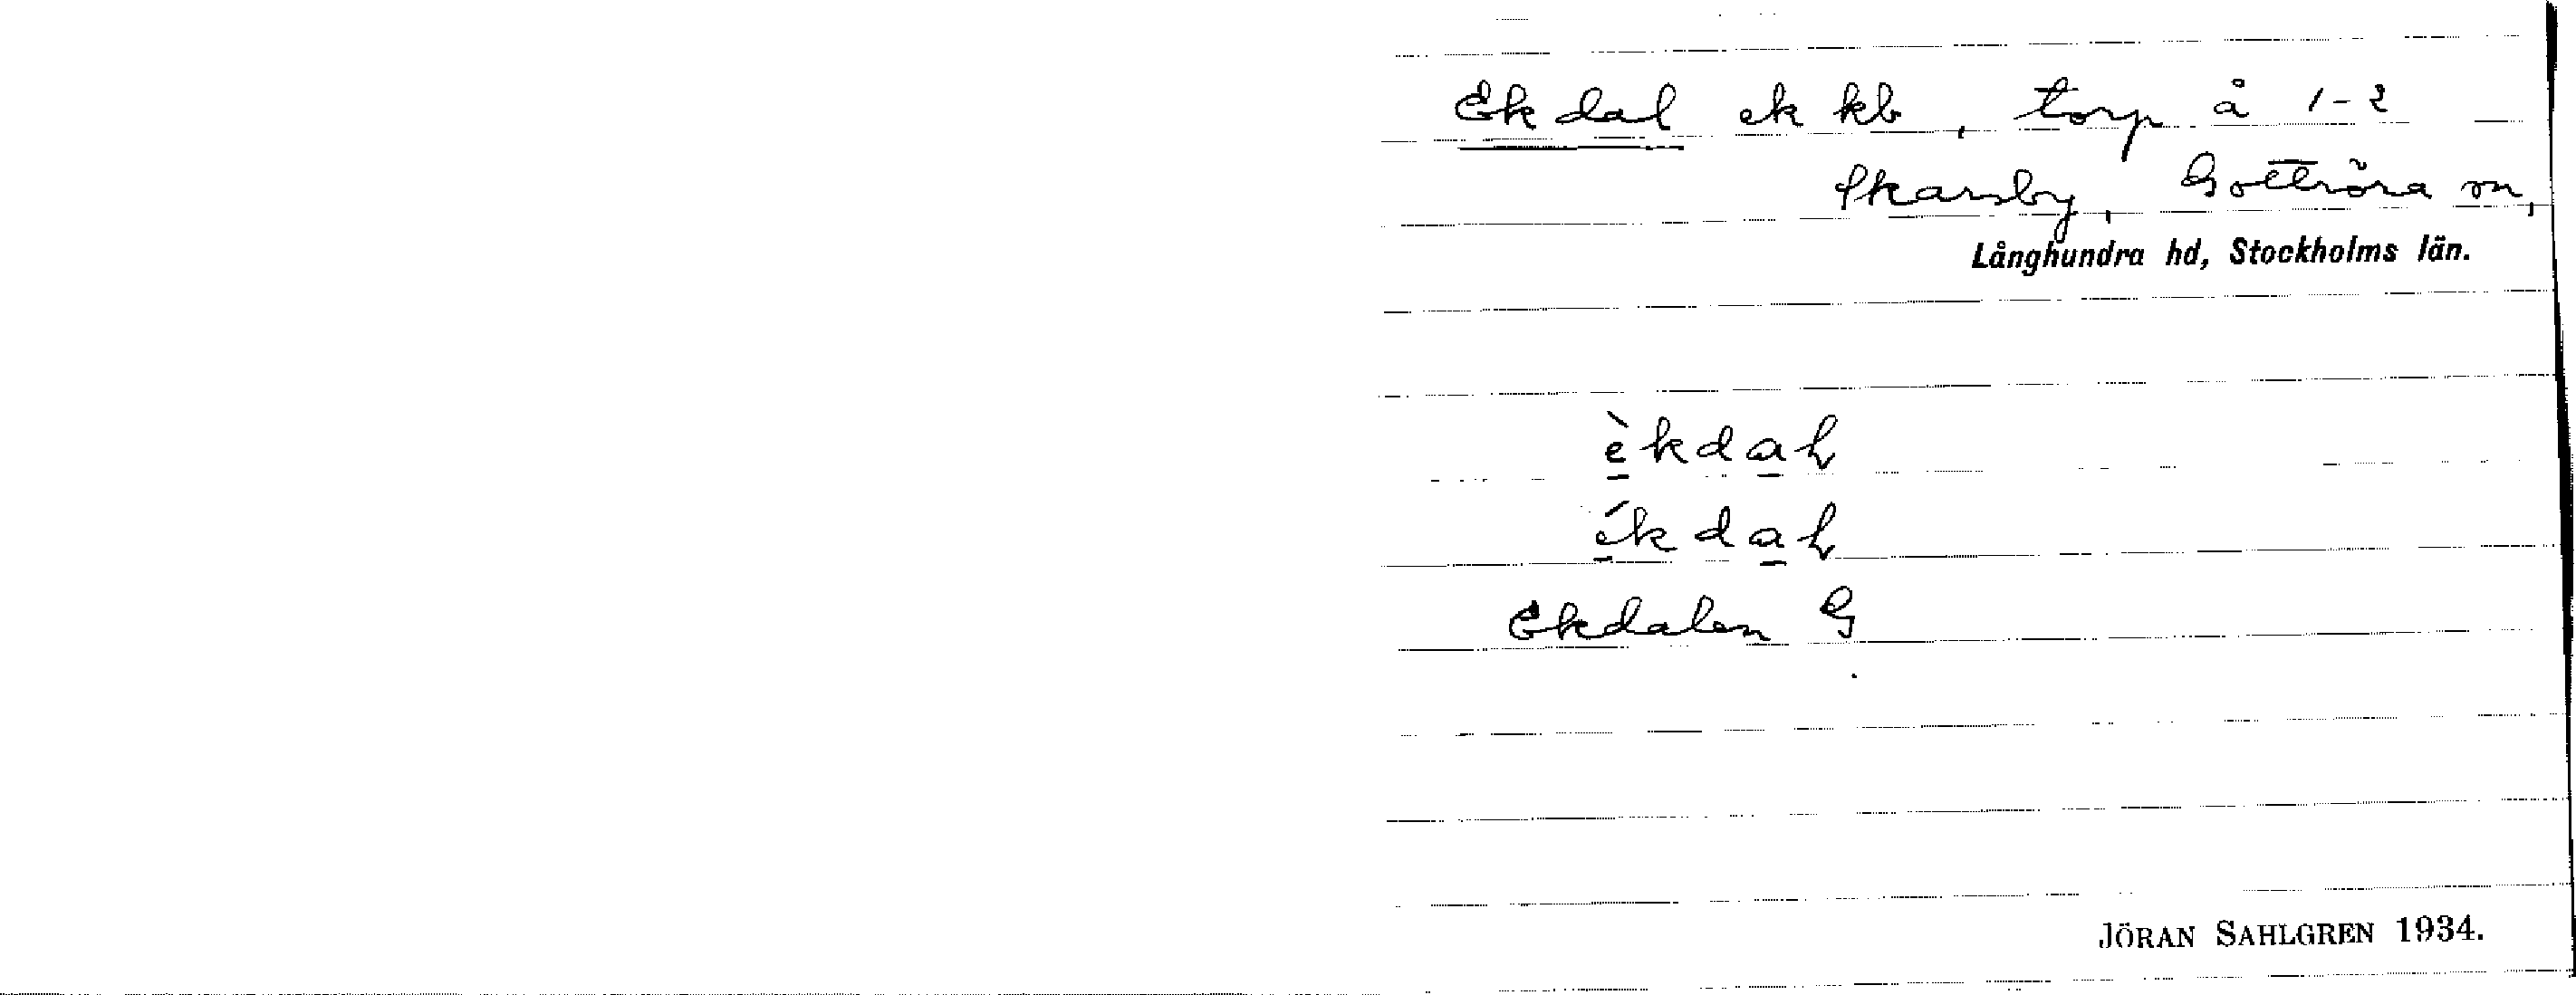 Ekdal ek kb, torp å 1-2
Skarsby, Gottröra sn,
Långhundra hd, Stockholms län.
èkdaɫ
ékdaɫ
Ekdalen G
JÖRAN SAHLGREN 1934.